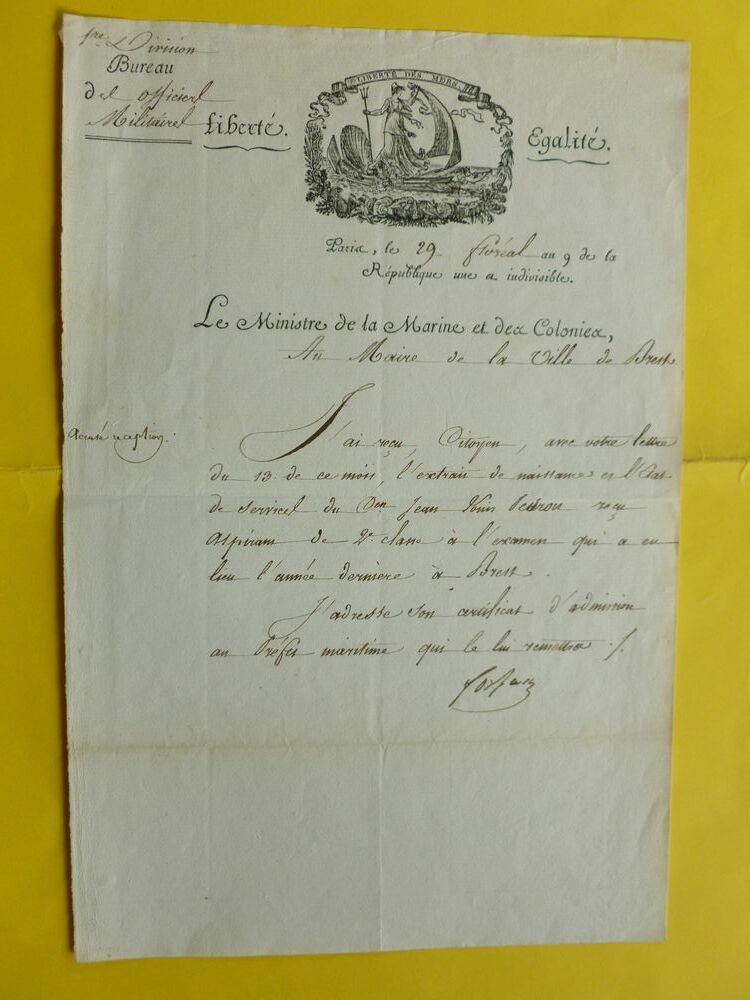 1re Division
Bureau
des officiers
Militaires
Liberté.
LIBERTÉ DES MERS.
Egalité.
Paris, le 29 floréal an 9 de la
République une et indivisible.
Le Ministre de la Marine et des Colonies,
Au Maire de la Ville de Brest
accusé réception.
J'ai reçu, Citoyen, avec votre lettre
du 13 de ce mois, l'extrait de naissance et l'Etat
de services du Cen Jean Louis reçu
aspirant de 2e classe à l'examen qui a eu
lieu l'année dernière à Brest.
J'adresse son certificat d'admission
au Préfet maritime qui le lui remettra ./.
Forfait